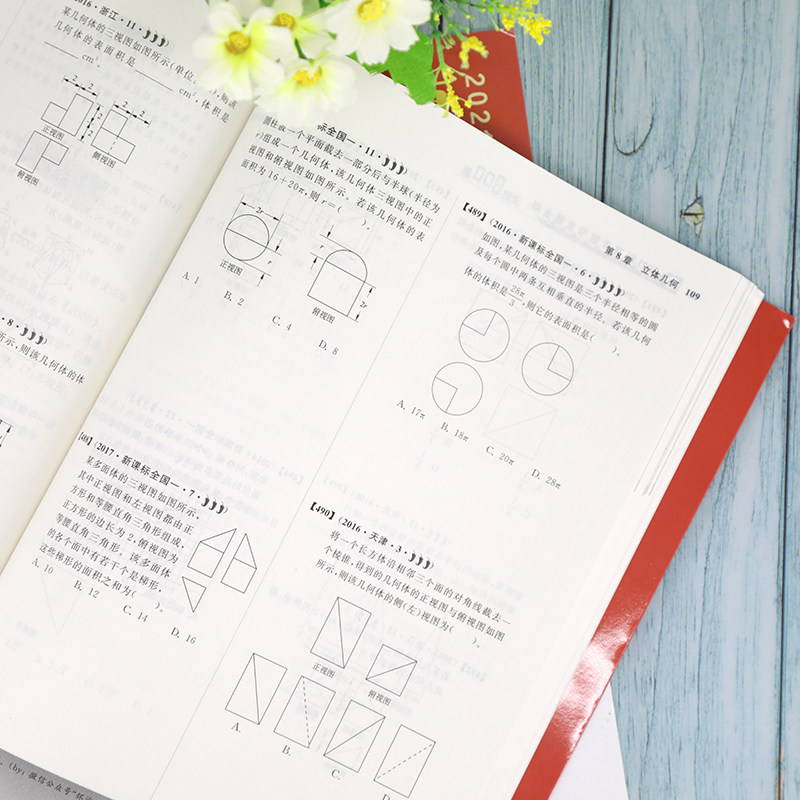 2016·浙江·11·
某几何体的三视图如图所示(单位
几何体的表面积是 cm²,体积是
cm³.
2
2
2
2
2
2
正视图
侧视图
俯视图
·8·
所示,则该几何体的体
标全国一·11·
圆柱被一个平面截去一部分后与半球(半径为
r)组成一个几何体,该几何体三视图中的正
视图和俯视图如图所示.若该几何体的表
面积为16+20π,则r=( ).
2r
r
正视图
r
2r
俯视图
A. 1
B. 2
C. 4
D. 8
(2017·新课标全国一·7·
某多面体的三视图如图所示,
其中正视图和左视图都由正
方形和等腰直角三角形组成,
正方形的边长为2,俯视图为
等腰直角三角形.该多面体
的各个面中有若干个是梯形,
这些梯形的面积之和为( ).
A. 10
B. 12
C. 14
D. 16
第8章 立体几何 109
【489】(2016·新课标全国一·6·
如图,某几何体的三视图是三个半径相等的圆
及每个圆中两条互相垂直的半径.若该几何
体的体积是28π/3,则它的表面积是( ).
A. 17π
B. 18π
C. 20π
D. 28π
【490】(2016·天津·3·
将一个长方体沿相邻三个面的对角线截去一
个棱锥,得到的几何体的正视图与俯视图如图
所示,则该几何体的侧(左)视图为( ).
正视图
俯视图
A.
B.
C.
D
(by:微信公众号"
202